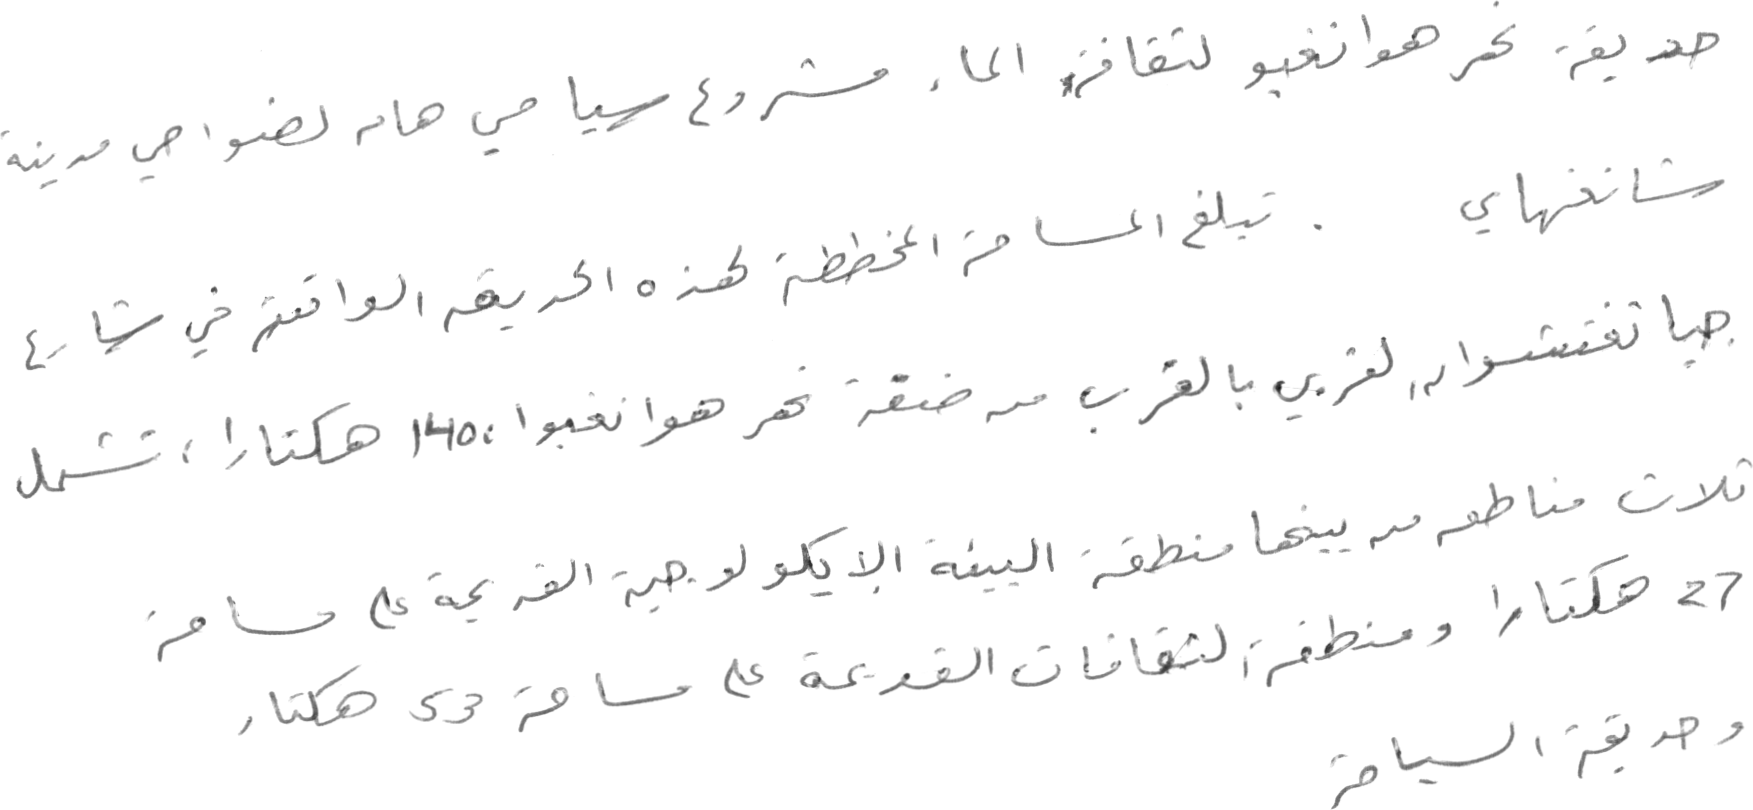 حديقة نهر هوانغبو لثقافة الماء مشروع سياحي هام لضواحي مدينة
شانغهاي . تبلغ المساحة المخططة لهذه الحديقة الواقعة في شارع
جيانغتشوان الغربي بالقرب من ضفة نهر هوانغبوا 140، هكتارا، تشمل
ثلاث مناطق من بينها منطقة البيئة الإيكولوجية القديمة على مساحة
27 هكتارا ومنطقة الثقافات القديمة على مساحة 53 هكتار
وحديقة السياحة